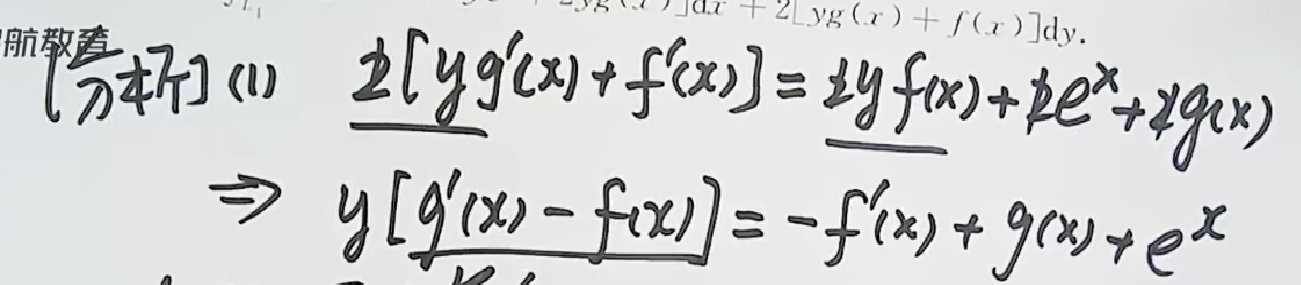 2yg(x)]dx + 2[yg(x) + f(x)]dy.
航教育
[分析] (1) 2[yg'(x)+f'(x)] = 2yf(x)+2e^x+2g(x)
⇒ y[g'(x) - f(x)] = -f'(x) + g(x) + e^x